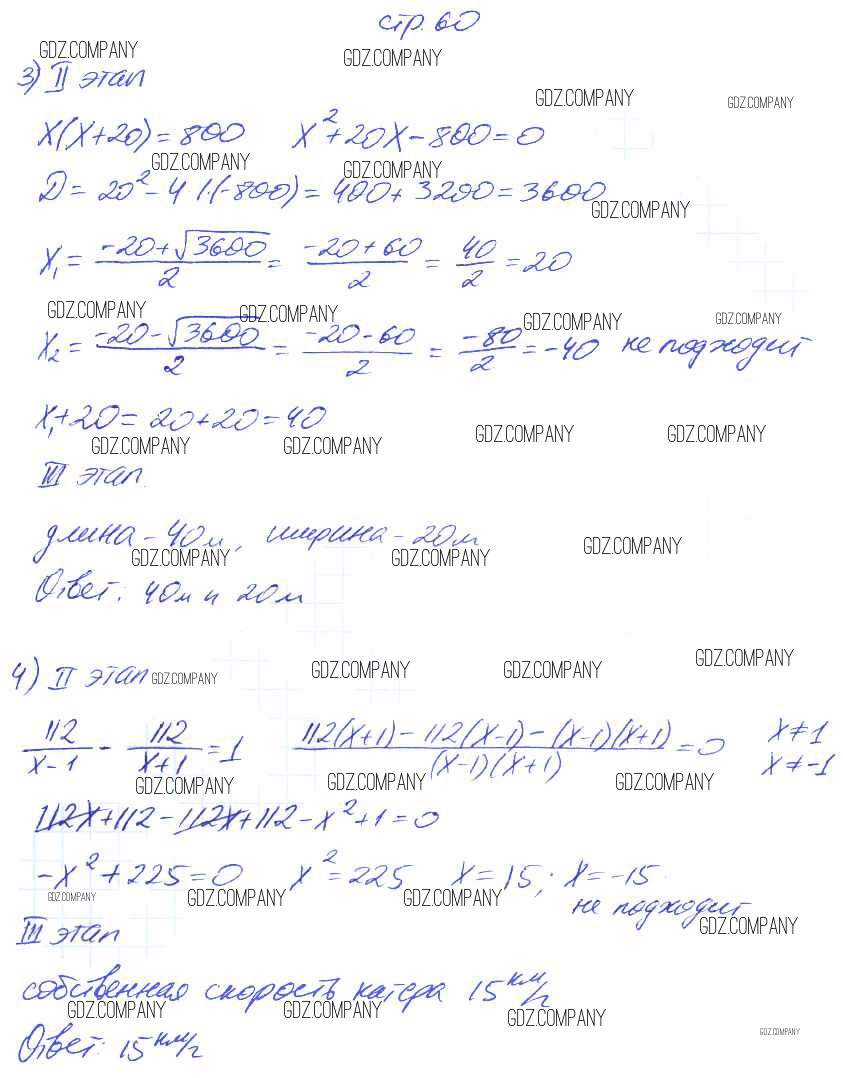 стр. 60
GDZ.COMPANY GDZ.COMPANY
3) II этап
GDZ.COMPANY GDZ.COMPANY
x(x+20)=800 x²+20x-800=0
GDZ.COMPANY GDZ.COMPANY
D=20²-4·1·(-800)=400+3200=3600
GDZ.COMPANY
x₁ = (-20+√3600)/2 = (-20+60)/2 = 40/2 = 20
GDZ.COMPANY GDZ.COMPANY GDZ.COMPANY GDZ.COMPANY
x₂ = (-20-√3600)/2 = (-20-60)/2 = -80/2 = -40 не подходит
x₁+20=20+20=40
GDZ.COMPANY GDZ.COMPANY GDZ.COMPANY GDZ.COMPANY
III этап.
длина-40м, ширина-20м
GDZ.COMPANY GDZ.COMPANY GDZ.COMPANY
Ответ: 40м и 20м
4) II этап GDZ.COMPANY GDZ.COMPANY GDZ.COMPANY GDZ.COMPANY
112/(x-1) - 112/(x+1) = 1 (112(x+1)-112(x-1)-(x-1)(x+1))/((x-1)(x+1)) = 0 x≠1
x≠-1
GDZ.COMPANY GDZ.COMPANY GDZ.COMPANY
112x+112-112x+112-x²+1=0
-x²+225=0 x²=225 x=15; x=-15
GDZ.COMPANY GDZ.COMPANY GDZ.COMPANY не подходит
III этап GDZ.COMPANY
собственная скорость катера 15 км/ч
GDZ.COMPANY GDZ.COMPANY GDZ.COMPANY
Ответ: 15 км/ч GDZ.COMPANY